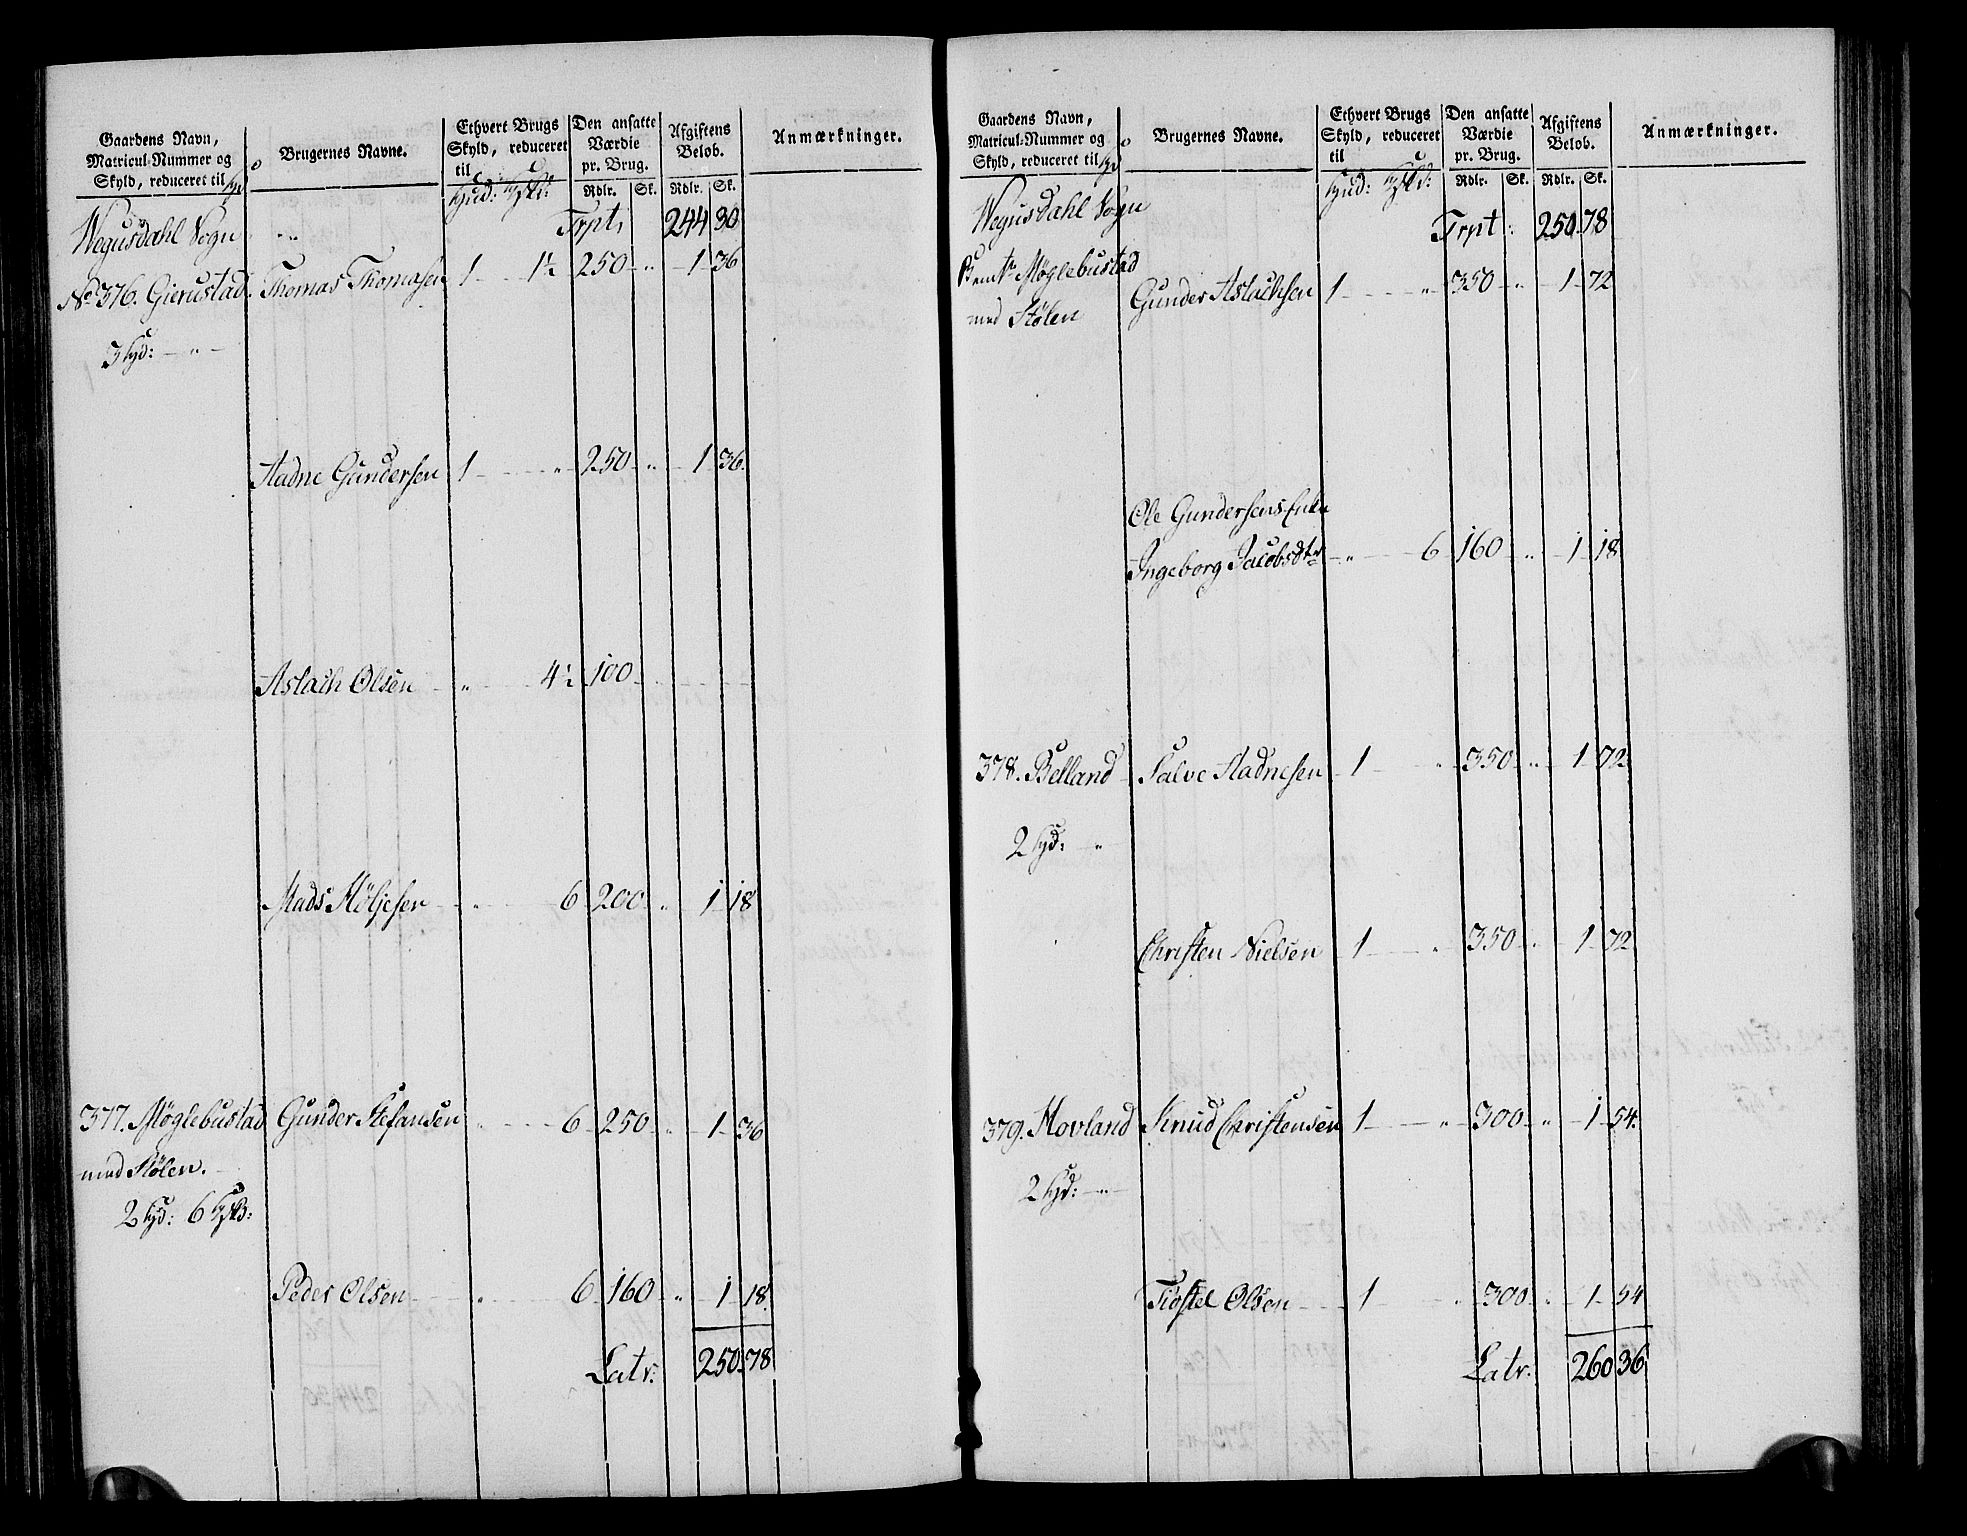 Gaardens Navn, Matricul-Nummer og Skyld, reduceret til | Brugernes Navne. | Ethvert Brugs Skyld, reduceret til | Den ansatte Værdie pr. Brug. | Afgiftens Beløb. | Anmærkninger.
Rdlr. Sk. Rdlr. Sk.
Wegusdahl Sogn Trpt, 244 30
No 376. Gierustad Thomas Thomasen 1 1½ 250 " 1 36
3 Hd: "
Aadne Gundersen 1 " 250 " 1 36.
Aslach Olsen " 4½ 100
Mads Höljesen " 6 200 " 1 18
377. Møglebustad Gunder Stefansen " 6 250 " 1 36
med Stølen.
2 Hd: 6
Peder Olsen " 6 160 " 1 18.
Latr: 250 78
Gaardens Navn, Matricul-Nummer og Skyld, reduceret til | Brugernes Navne. | Ethvert Brugs Skyld, reduceret til | Den ansatte Værdie pr. Brug. | Afgiftens Beløb. | Anmærkninger.
Rdlr. Sk. Rdlr. Sk.
Wegusdahl Sogn Trpt: 250 78
Møglebustad
med Stølen Gunder Aslachsen 1 " 350 " 1 72
Ole Gundersens Enke
Ingeborg Jacobsdtr " 6 160 " 1 18
378. Belland Salve Aadnesen 1 " 350 " 1 72
2 Hd: "
Christen Nielsen 1 " 350 " 1 72
379. Hovland Knud Christensen 1 " 300 " 1 54.
2 Hd: "
Tiøstel Olsen 1 " 300 " 1 54
Latr: 260 36